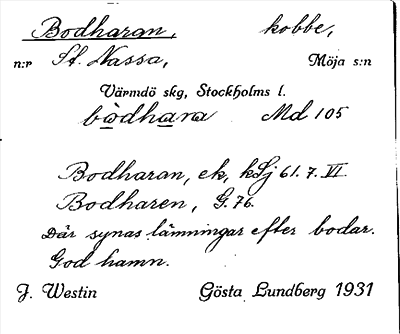 Bodharan, kobbe,
n:r St. Nassa, Möja s:n
Värmdö skg, Stockholms l.
bòdhara Md 105
Bodharan, ek, kSj 61.7.VI.
Bodharen, G.76.
Där synas lämningar efter bodar.
God hamn.
J. Westin Gösta Lundberg 1931